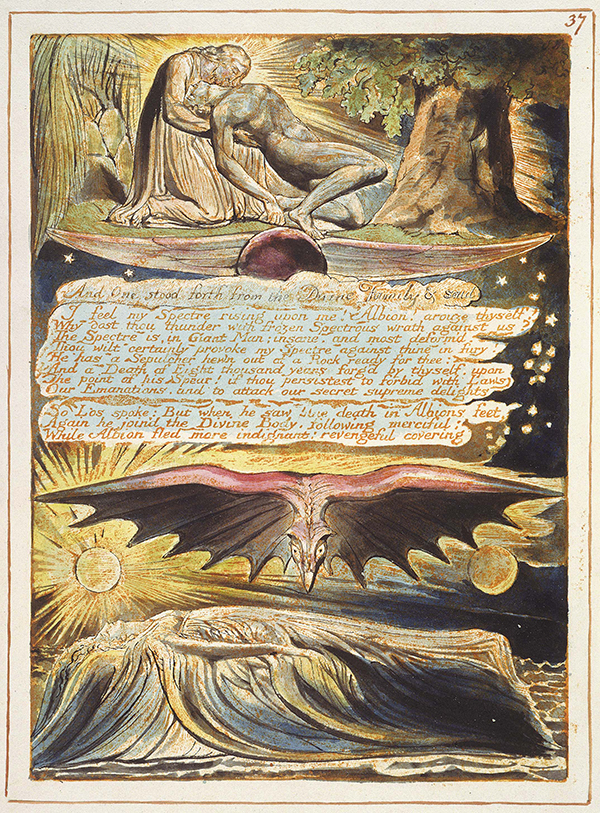 37
And One stood forth from the Divine Family & said
I feel my Spectre rising upon me! Albion! arouze thyself!
Why dost thou thunder with frozen Spectrous wrath against us?
The Spectre is, in Giant Man; insane, and most deform'd.
Thou wilt certainly provoke my Spectre against thine in fury!
He has a Sepulcher hewn out of a Rock ready for thee:
And a Death of Eight thousand years forg'd by thyself, upon
The point of his Spear! if thou persistest to forbid with Laws
Our Emanations, and to attack our secret supreme delights
So Los spoke: But when he saw death in Albions feet,
Again he join'd the Divine Body, following merciful;
While Albion fled more indignant! revengeful covering